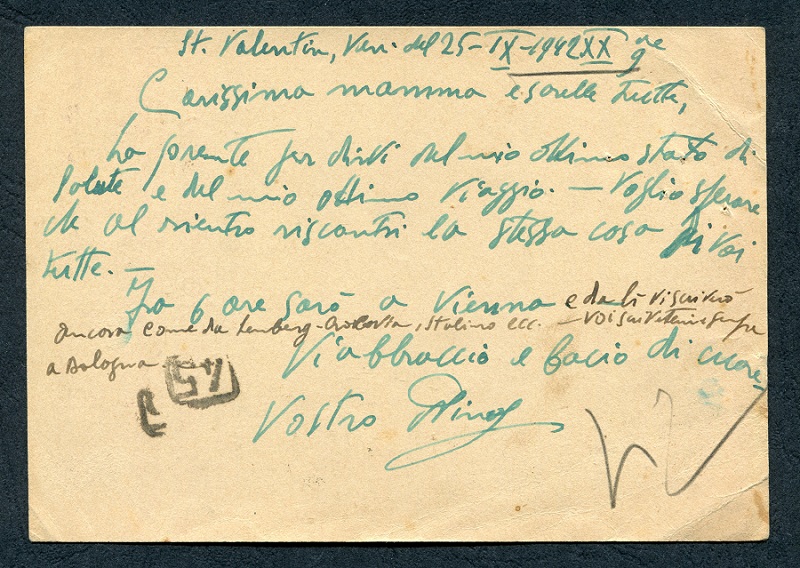 St. Valentin, Ven. del 25-IX-1942 XX
ore 9
Carissima mamma e sorelle tutte,
La presente per dirVi del mio ottimo stato di
salute e del mio ottimo viaggio. — Voglio sperare
che al rientro riscontri la stessa cosa di voi
tutte. —
Fra 6 ore sarò a Vienna e da lì vi scriverò
ancora come da Lemberg - Cracovia, Stalino ecc. — Voi scrivetemi sempre
a Bologna.
Vi abbraccio e bacio di cuore
45
Vostro